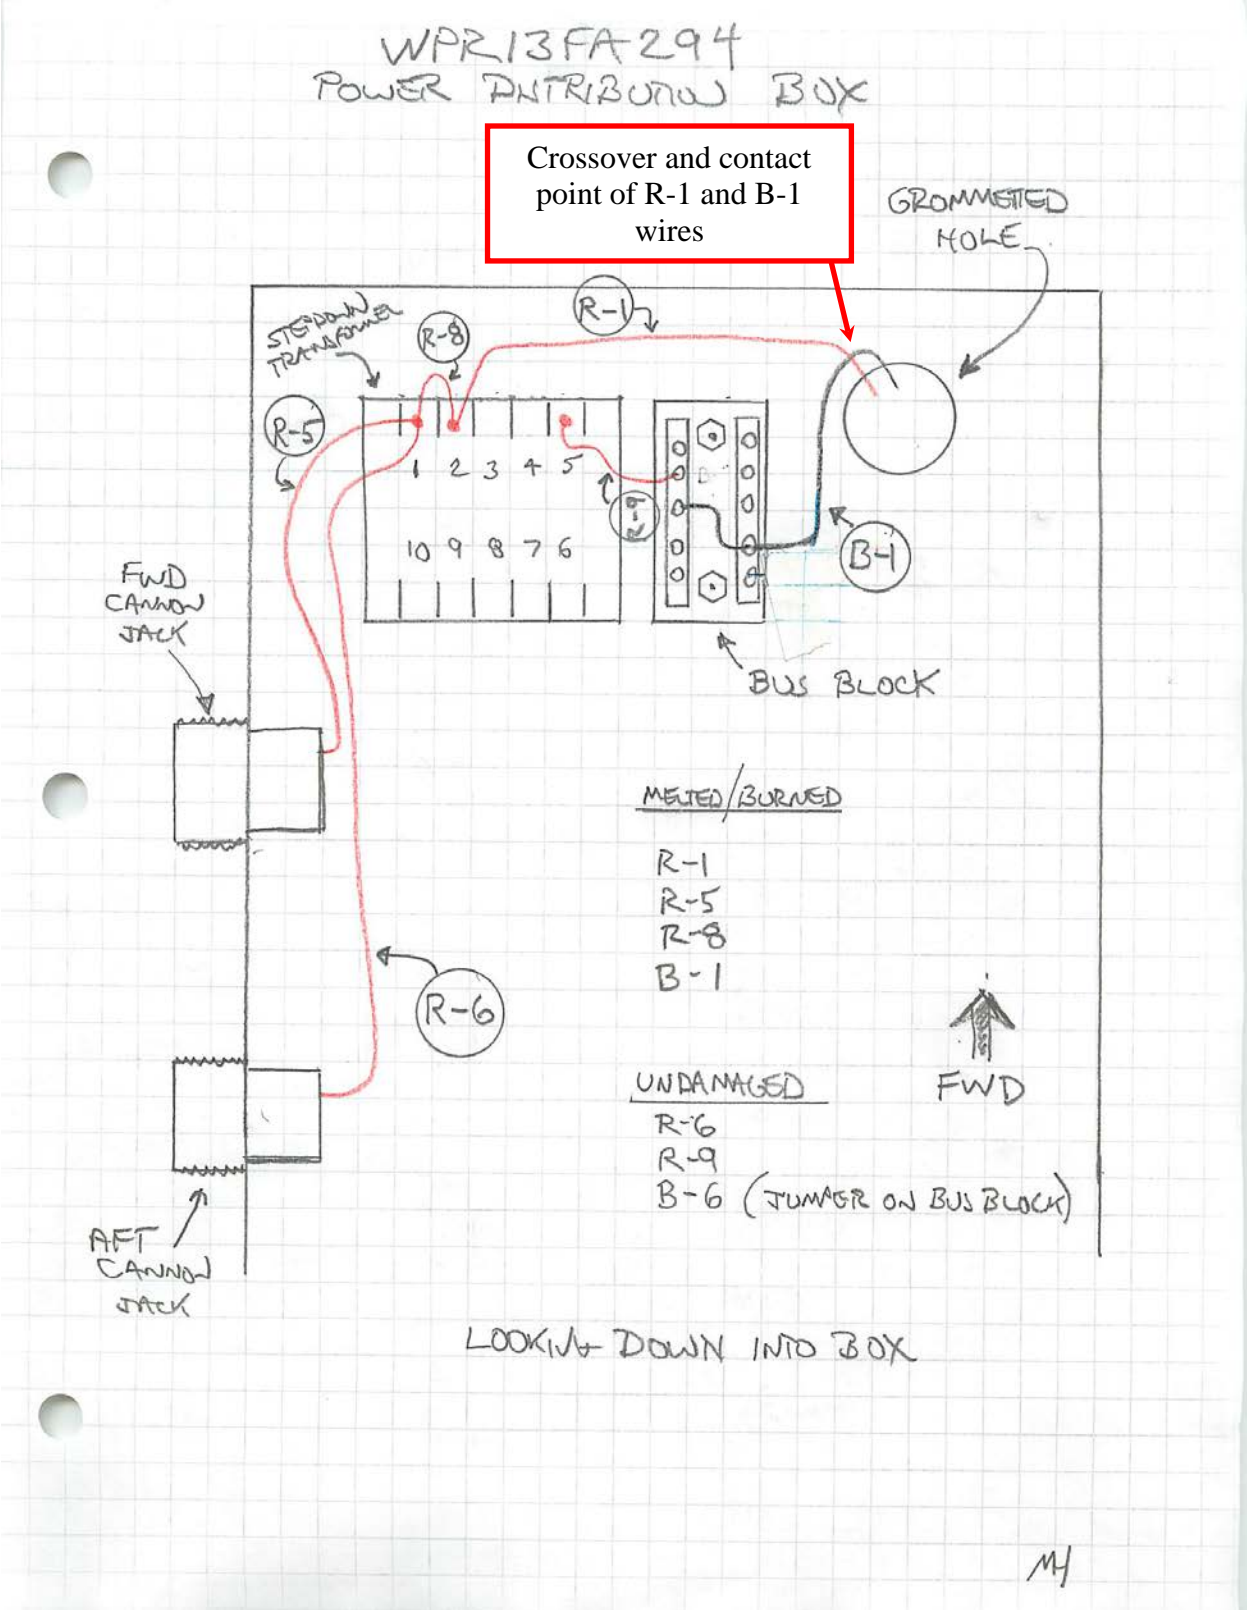 WPR13FA294
POWER DISTRIBUTION BOX
Crossover and contact
point of R-1 and B-1
wires
GROMMETED
HOLE
STEPDOWN
TRANSFORMER
R-8
R-1
R-5
1 2 3 4 5
10 9 8 7 6
R-9
B-1
FWD
CANNON
JACK
BUS BLOCK
MELTED/BURNED
R-1
R-5
R-8
B-1
R-6
FWD
UNDAMAGED
R-6
R-9
B-6 (JUMPER ON BUS BLOCK)
AFT
CANNON
JACK
LOOKING DOWN INTO BOX